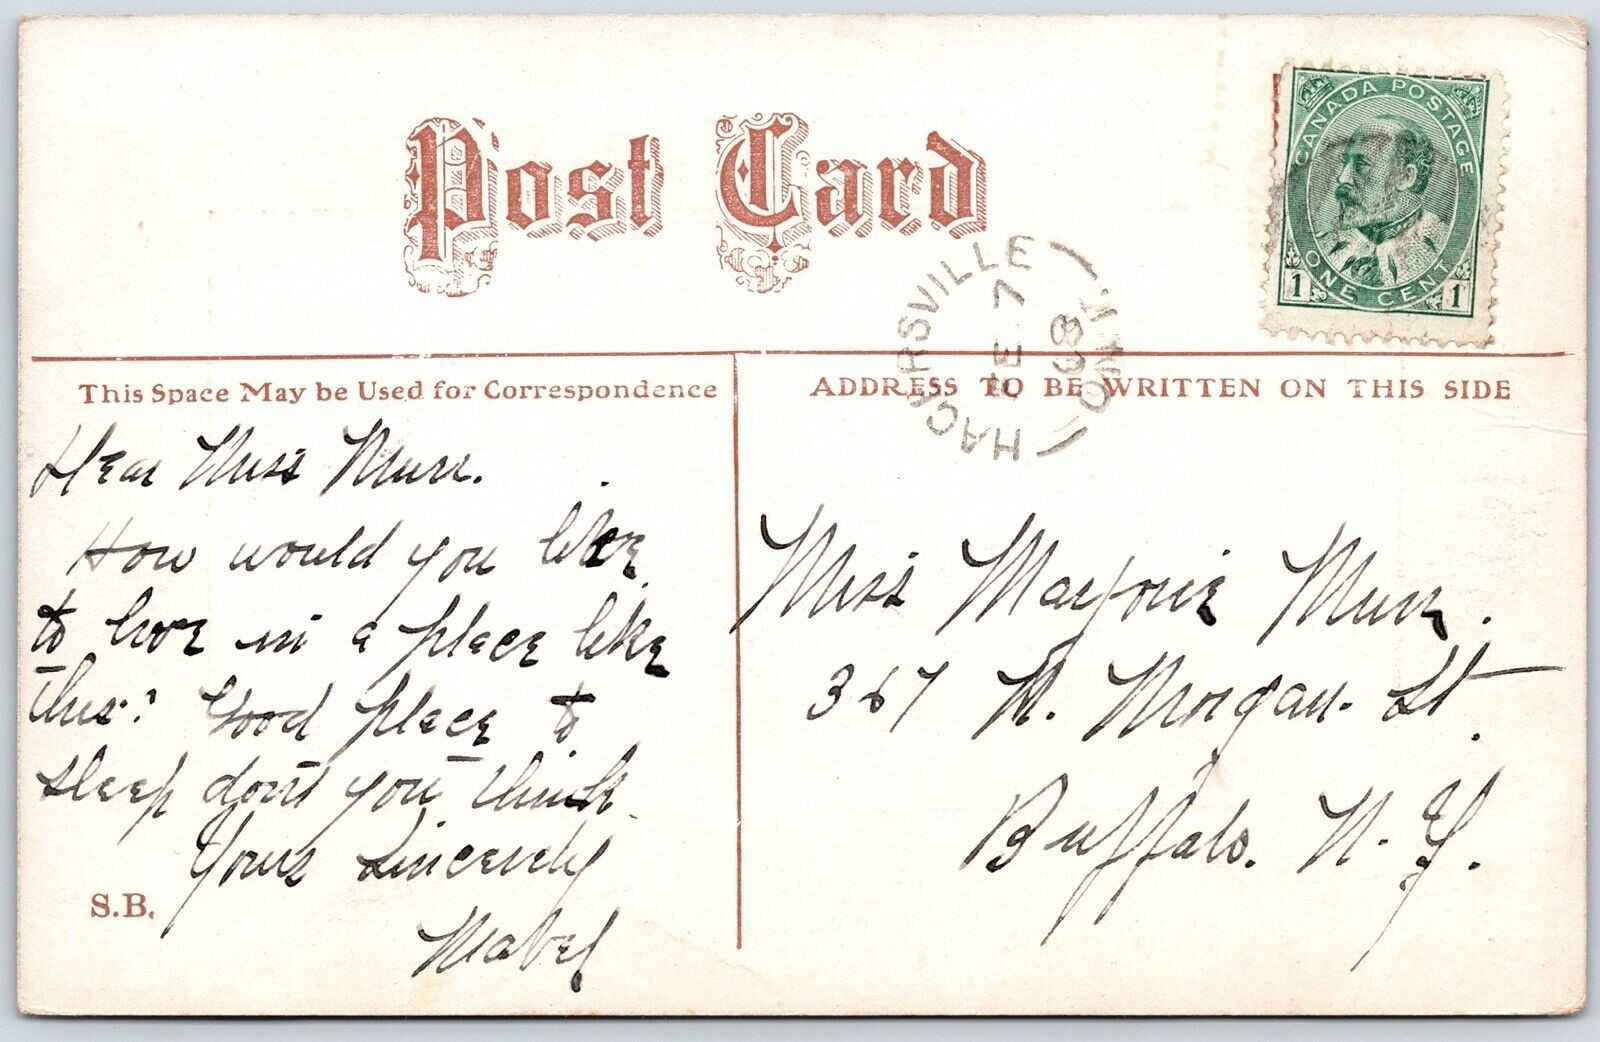 Post Card
CANADA POSTAGE
1 ONE CENT 1
HAGERSVILLE
FE 7
08
ONT
This Space May be Used for Correspondence
ADDRESS TO BE WRITTEN ON THIS SIDE
Dear Miss Murr.
How would you like
to live in a place like
this? Good place to
sleep dont you think.
Yours Sincerely
Mabel
S.B.
Miss Marjorie Murr.
367 N. Morgan. St.
Buffalo. N. Y.